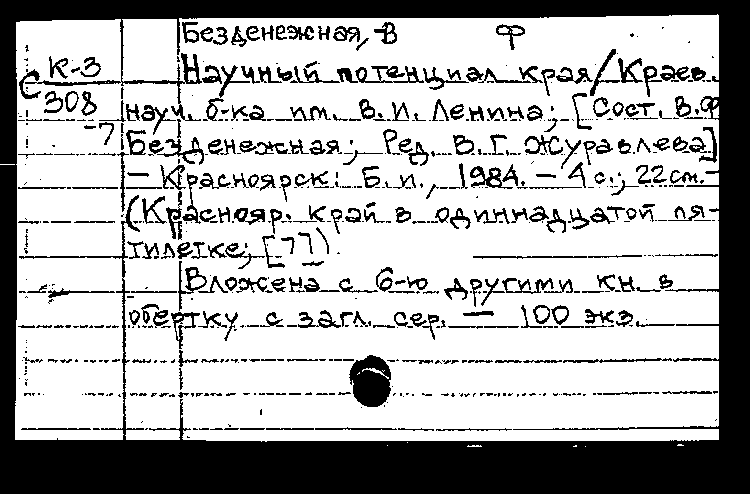 Безденежная, В Ф
С К-3 Научный потенциал края/Краев.
308 науч. б-ка им. В. И. Ленина; [Сост. В.Ф
-7 Безденежная; Ред. В. Г. Журавлева]
— Красноярск: Б. и., 1984. — 4 с.; 22 см. —
(Краснояр. край в одиннадцатой пя-
тилетке; [7]).
Вложена с 6-ю другими кн. в
обертку с загл. сер. — 100 экз.